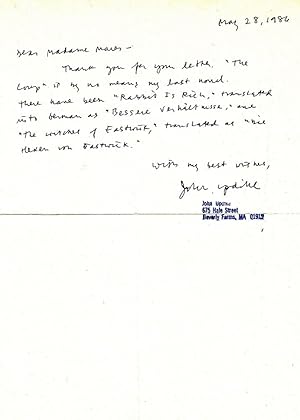 May 28, 1986
Dear Madame
Thank you for your letter. "The
Coup" is by no means my last novel.
There have been "Rabbit Is Rich," translated
into German as "Bessere Verhältnisse," and
"The Witches of Eastwick," translated as "Die
Hexen von Eastwick."
With my best wishes,
John Updike
John Updike
675 Hale Street
Beverly Farms, MA 01915